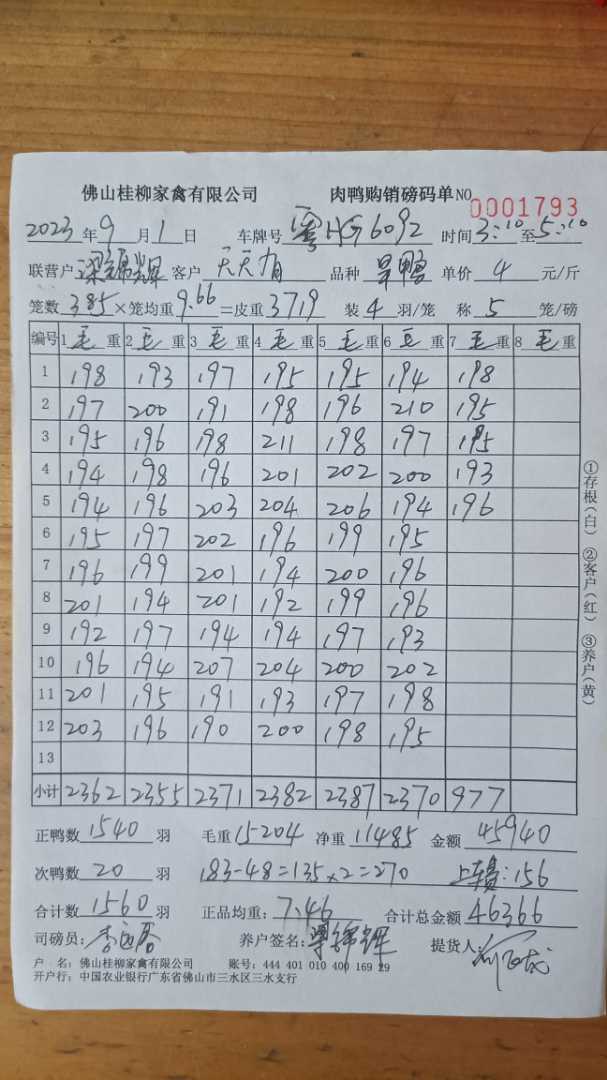 佛山桂柳家禽有限公司 肉鸭购销磅码单NO 0001793
2023年9月1日 车牌号 粤HG6092 时间3:10至5:10
联营户 梁锦辉 客户 天天 品种 旱鸭 单价 4 元/斤
笼数385×笼均重9.66=皮重3719 装4羽/笼 称5笼/磅
编号 1毛重 2毛重 3毛重 4毛重 5毛重 6毛重 7毛重 8毛重
1 198 193 197 195 195 194 198
2 197 200 191 198 196 210 195
3 195 196 198 211 198 197 195
4 194 198 196 201 202 200 193
5 194 196 203 204 206 194 196
6 195 197 202 196 199 195
7 196 199 201 194 200 196
8 201 194 201 192 199 196
9 192 197 194 194 197 193
10 196 194 207 204 200 202
11 201 195 191 193 197 198
12 203 196 190 200 198 195
13
小计 2362 2355 2371 2382 2387 2370 977
①存根(白) ②客户(红) ③养户(黄)
正鸭数 1540 羽 毛重 15204 净重 11485 金额 45940
次鸭数 20 羽 183-48=135×2=270 上车费:156
合计数 1560 羽 正品均重:7.46 合计总金额 46366
司磅员: 养户签名:梁锦辉 提货人:
户 名:佛山桂柳家禽有限公司 账号:444 401 010 400 169 29
开户行:中国农业银行广东省佛山市三水区三水支行